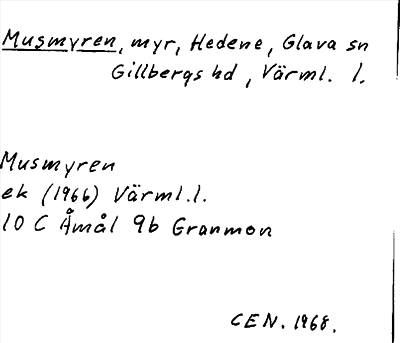 Musmyren, myr, Hedene, Glava sn
Gillbergs hd, Värml. l.
Musmyren
ek (1966) Värml.l.
10 C Åmål 9b Granmon
CEN. 1968.